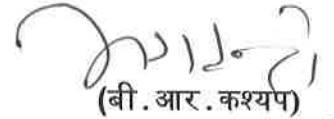 (बी.आर.कश्यप)